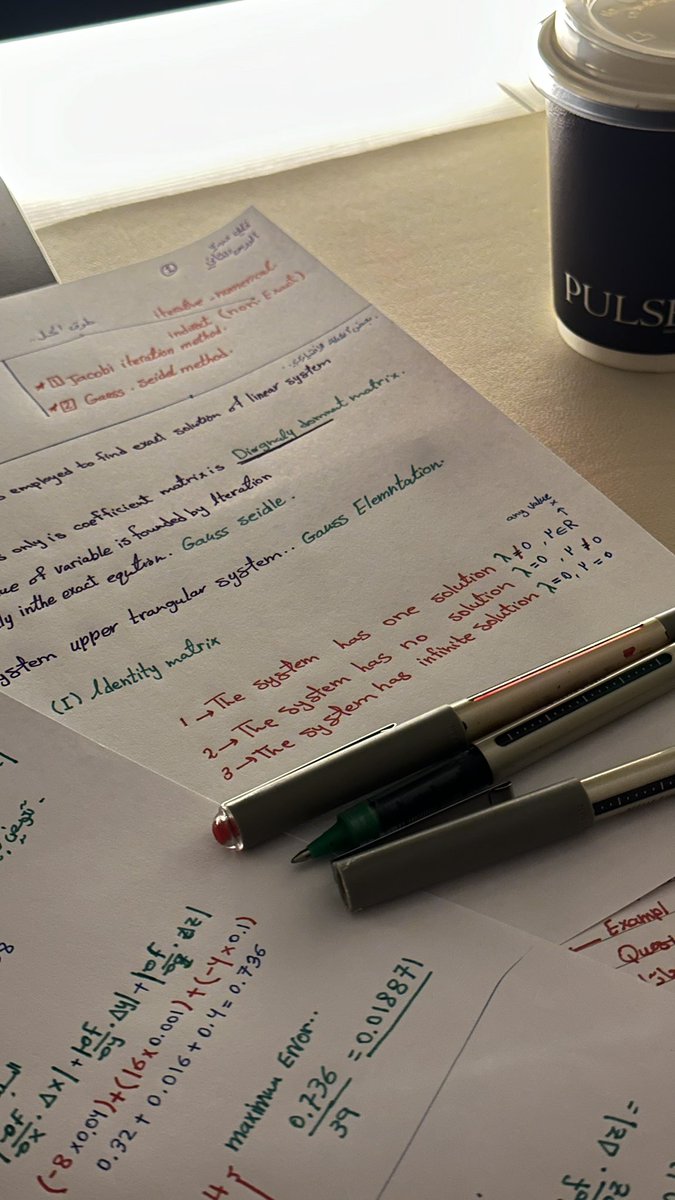 ①
Iterative - numerical
indirect (non-Exact)
* [1] Jacobi iteration method.
* [2] Gaess. seidel method.
employed to find exact solution of linear system
only is coefficient matrix is Diegnaly domment matrix.
ue of variable is founded by Iteration
ly in the exact eqution. Gauss seidle.
ystem upper trangular system.. Gauss Elemntation.
(I) Identity matrix
any value
1 → The system has one solution λ≠0, μ∈R
2 → The system has no solution λ=0, μ≠0
3 → The system has infinite solution λ=0, μ=0
PULSE
|∂f/∂x . Δx| + |∂f/∂y . Δy| + |∂f/∂z . Δz|
(-8 × 0.04) + (16 × 0.001) + (-4 × 0.1)
0.32 + 0.016 + 0.4 = 0.736
maximum Error..
0.736/39 = 0.018871
Exampl
Quest
∂f/∂z . Δz| =